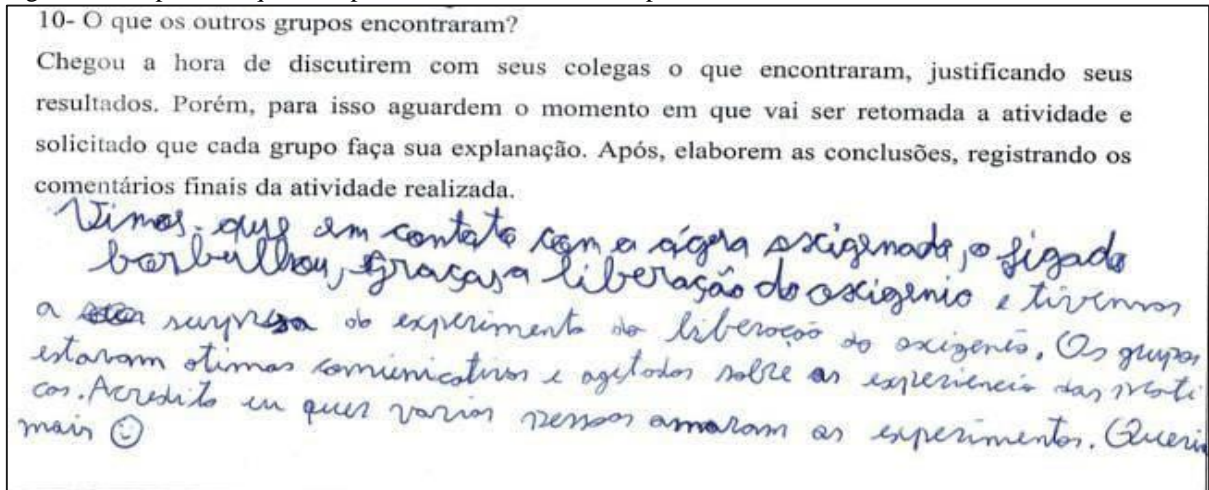 10- O que os outros grupos encontraram?
Chegou a hora de discutirem com seus colegas o que encontraram, justificando seus
resultados. Porém, para isso aguardem o momento em que vai ser retomada a atividade e
solicitado que cada grupo faça sua explanação. Após, elaborem as conclusões, registrando os
comentários finais da atividade realizada.
Vimos que em contato com a água oxigenada, o figado
borbulhou, graças a liberação do oxigenio e tivemos
a surpresa do experimento da liberação do oxigenio. Os grupos
estavam otimos comunicativos e agitados sobre as experiencia das
. Acredito eu que varias pessoas amaram os experimentos. Queria
mais ☺